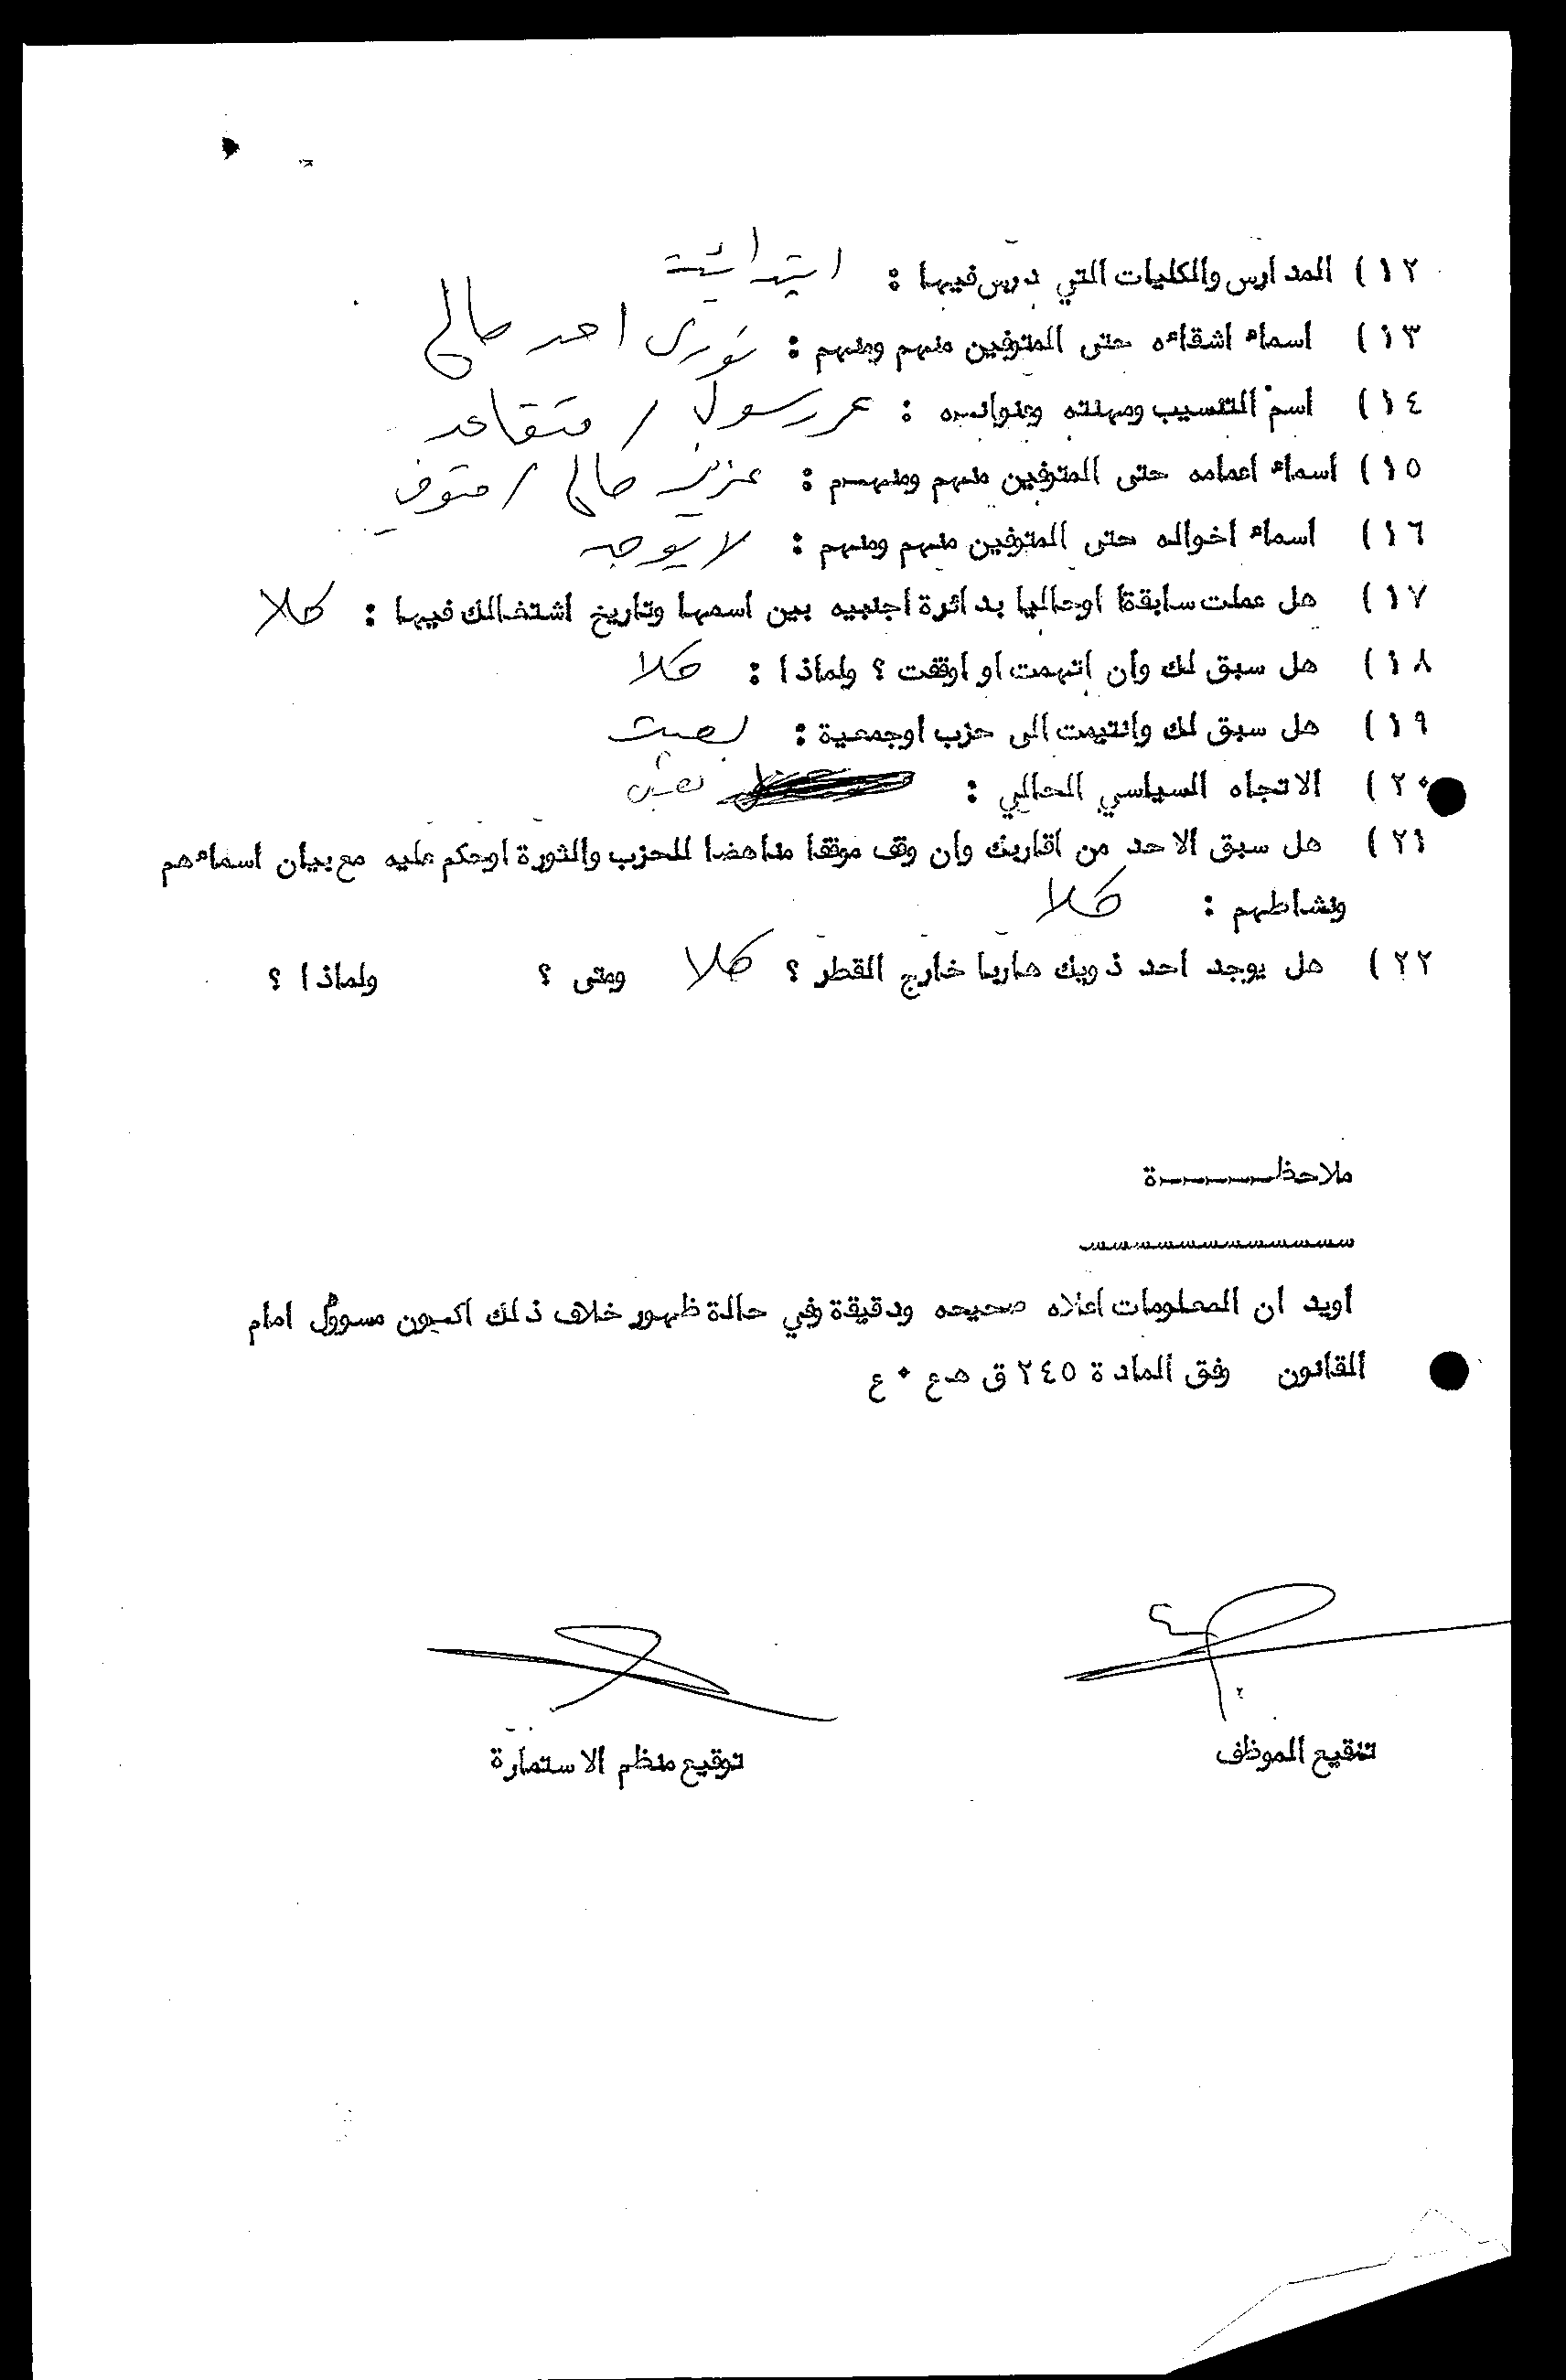 ١٢ ) المدارس والكليات التي درس فيها : ابتدائية
١٣ ) اسماء اشقاءه حتى المتوفين منهم ومنهم : نوري احمد صالح
١٤ ) اسم التنسيب ومهنته وعنوانه : عمر رسول / متقاعد
١٥ ) اسماء اعمامه حتى المتوفين منهم ومنهم : عزيز صالح / متوفي
١٦ ) اسماء اخواله حتى المتوفين منهم ومنهم : لا يوجد
١٧ ) هل عملت سابقة اوحاليا بدائرة اجنبيه بين اسمها وتاريخ اشتغالك فيها : كلا
١٨ ) هل سبق لك وان اتهمت او اوقفت ؟ ولماذا : كلا
١٩ ) هل سبق لك وانتيمت الى حزب اوجمعية :
٢٠ ) الاتجاه السياسي الحالي :
٢١ ) هل سبق الاحد من اقاربك وان وقف موقفا مناهضا للحزب والثورة اوحكم عليه مع بيان اسماءهم
ونشاطهم : كلا
٢٢ ) هل يوجد احد ذويك هاربا خارج القطر ؟ كلا ومتى ؟ ولماذا ؟
ملاحظـــــــة
اويد ان المعلومات اعلاه صحيحه ودقيقة وفي حالة ظهور خلاف ذلك اكون مسوول امام
القانون وفق المادة ٢٤٥ ق هـ ع ٠ ع
تنقيع الموظف
توقيع منظم الاستمارة